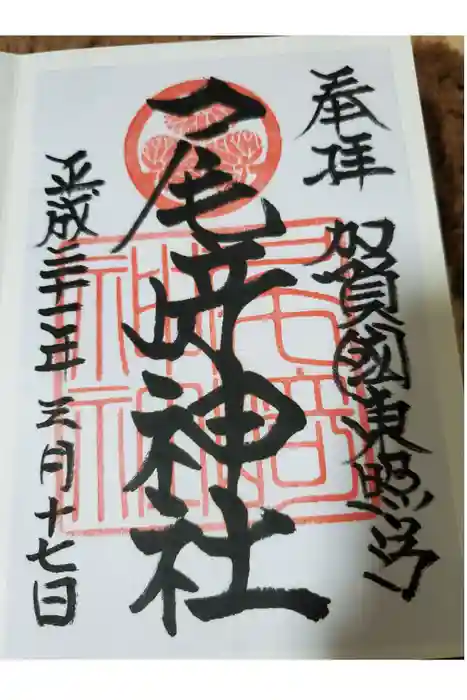 奉拝
加賀國東照宮
尾﨑神社
平成三十一年三月十七日